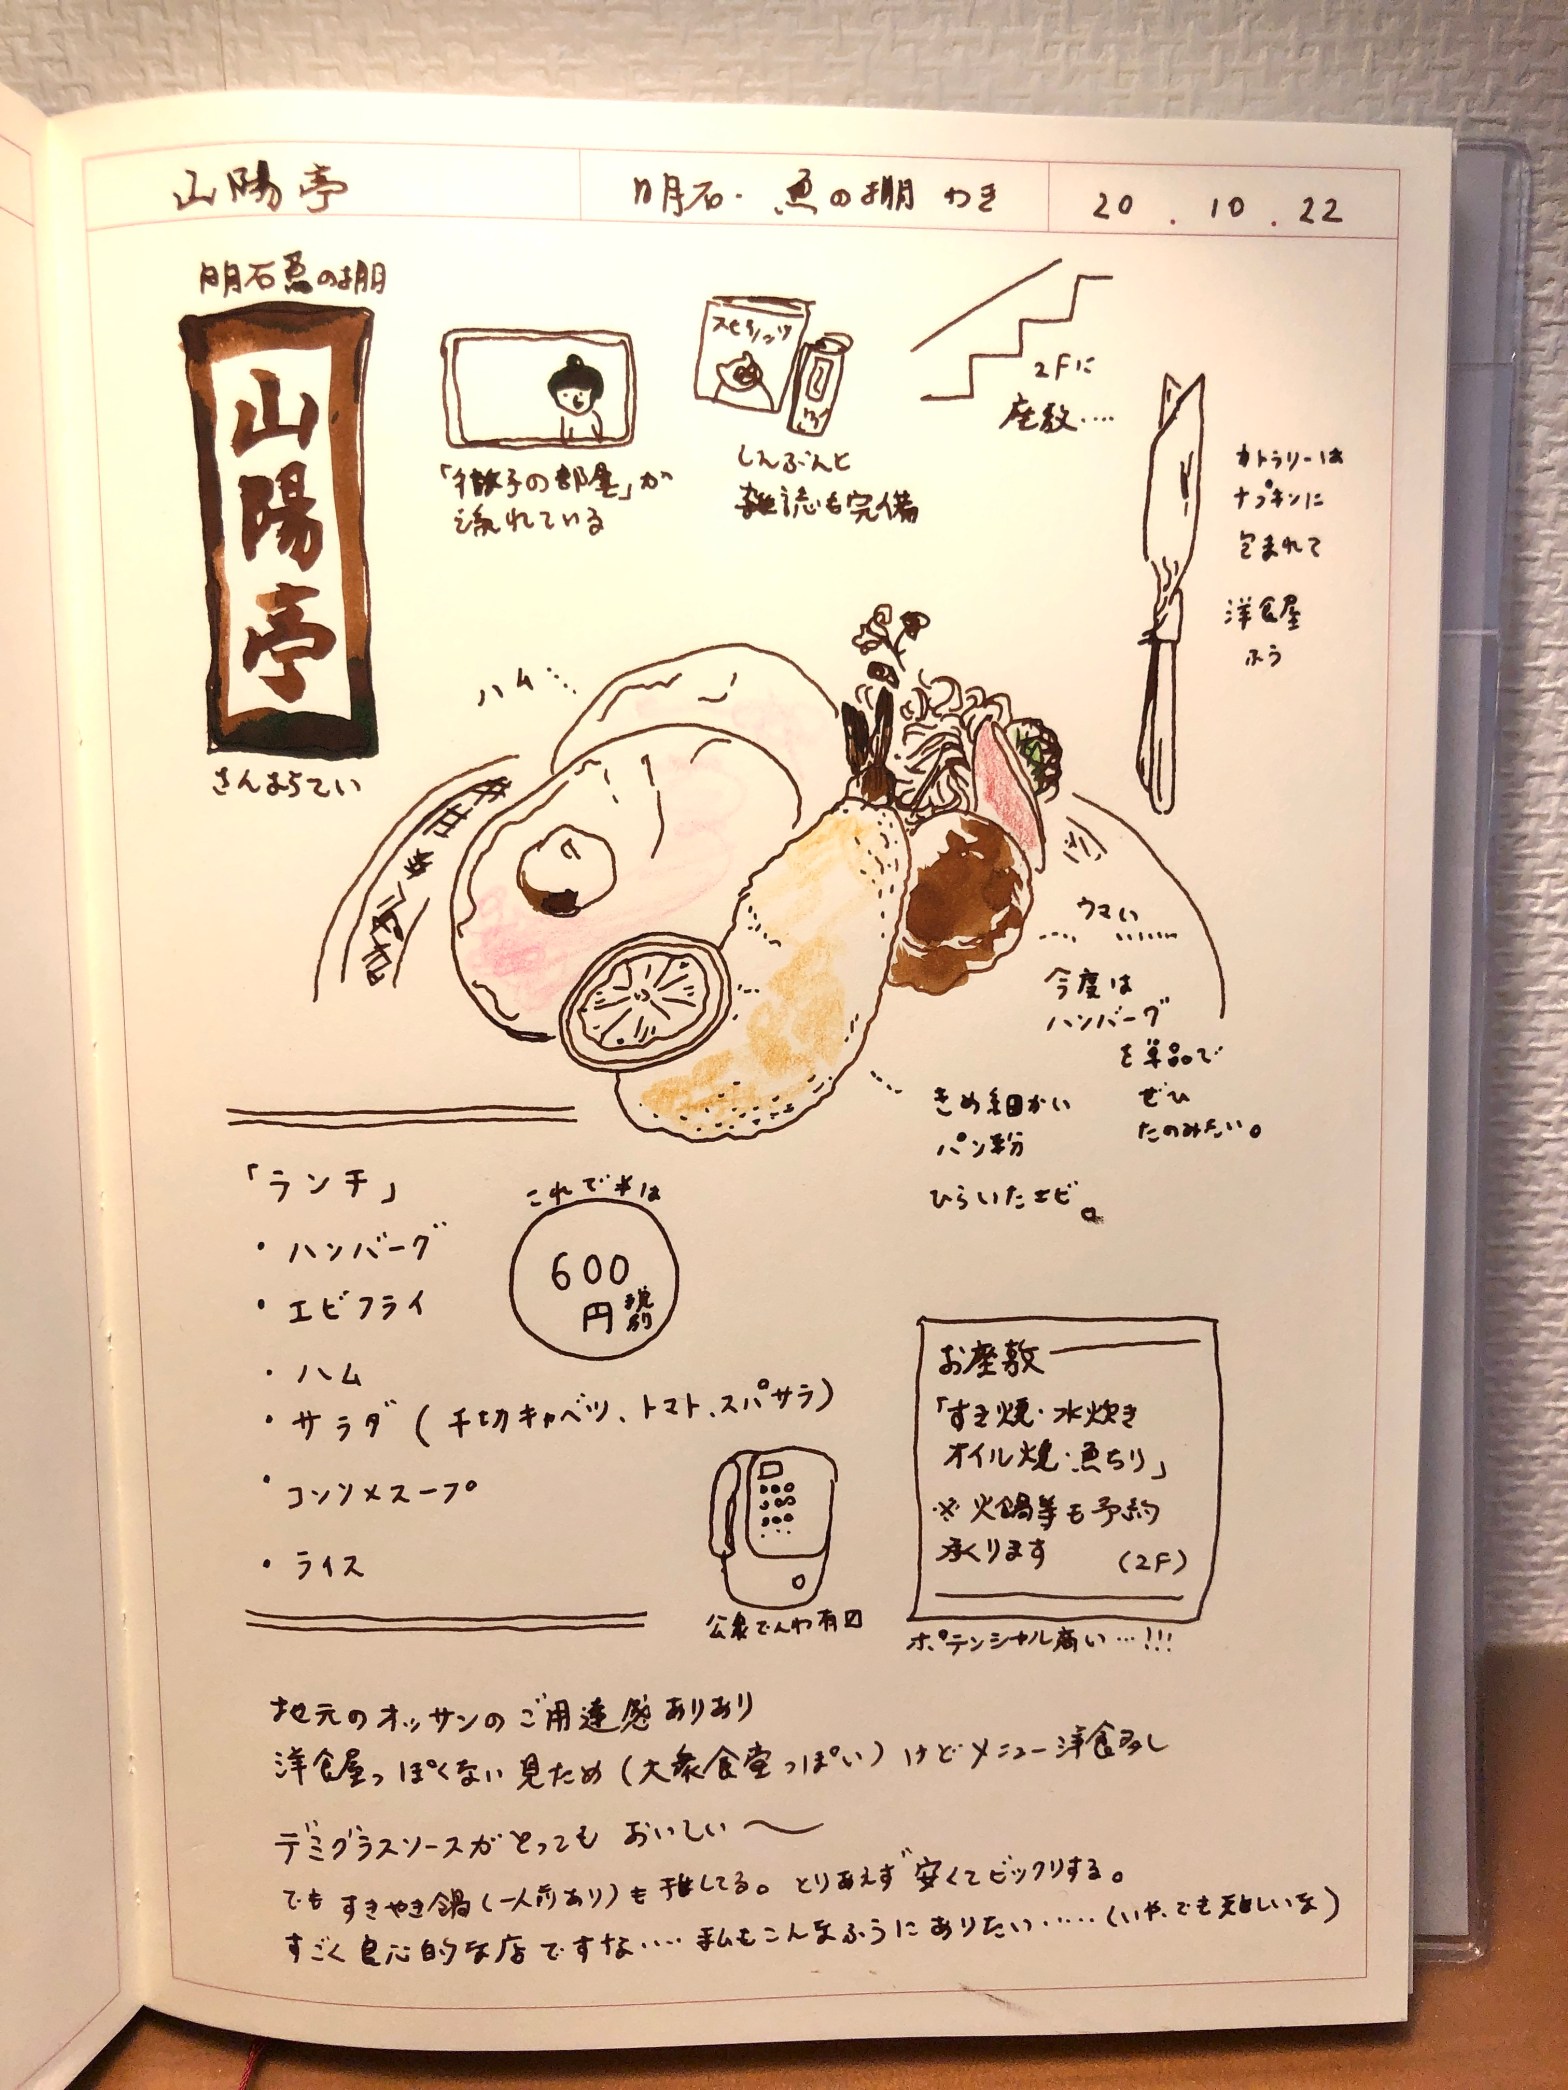 山陽亭
明石・魚の棚 わき
20.10.22
明石魚の棚
山陽亭
さんようてい
「徹子の部屋」が
流れている
スポーツ
しんぶんと
雑誌も完備
2Fに
座敷‥‥
カトラリーは
ナプキンに
包まれて
洋食屋
ふう
ハム
ウマい
今度は
ハンバーグ
を単品で
ぜひ
たのみたい。
きめ細かい
パン粉
ひらいたエビ。
「ランチ」
・ハンバーグ
・エビフライ
・ハム
・サラダ(千切キャベツ、トマト、スパサラ)
・コンソメスープ
・ライス
これで¥は
600
円 税別
公衆でんわ有
お座敷
「すき焼・水炊き
オイル焼・魚ちり」
※火鍋等も予約
承ります (2F)
ポテンシャル高い…!!!
地元のオッサンのご用達感ありあり
洋食屋っぽくない見ため(大衆食堂っぽい)けどメニュー洋食多し
デミグラスソースがとっても おいしい〜
でも すきやき鍋(一人前あり)も推してる。とりあえず安くてビックリする。
すごく良心的な店ですな‥‥私もこんなふうにありたい‥‥‥(いや、でも難しいな)